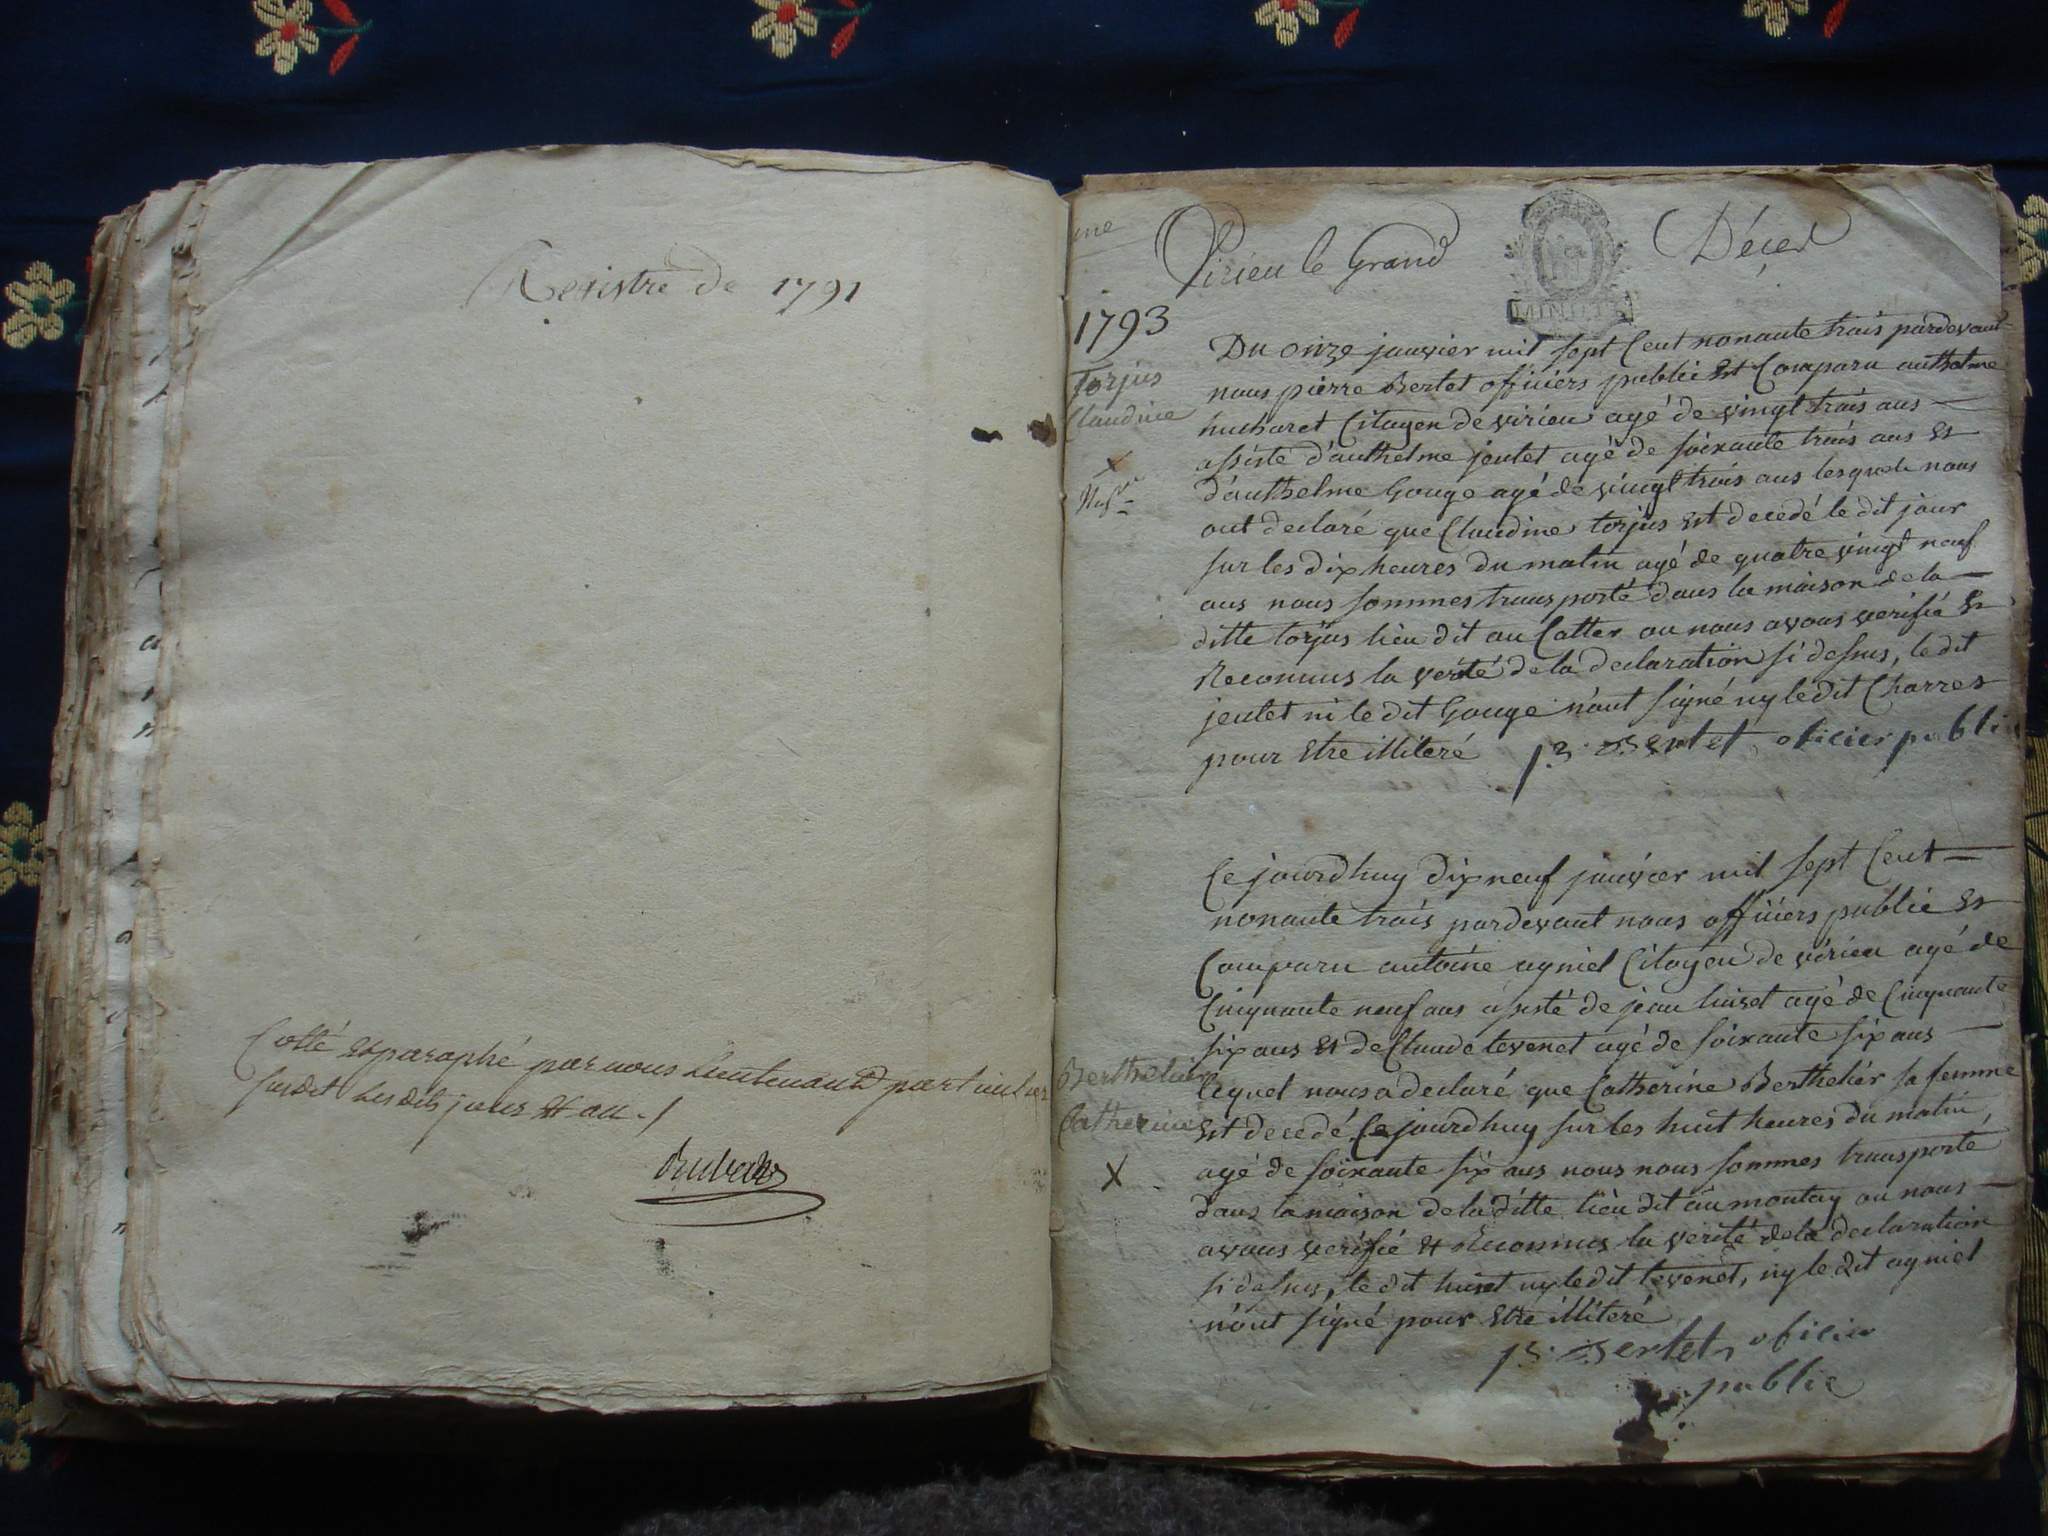 Registre de 1791
Cotté et paraphé par nous Lieutenant particulier
susdit les dits jour et an ./.
Virieu le Grand
Décer
MINUTE
1793
Torjus
Claudine
Du onze janvier mil sept Cent nonante trais pardevant
nous pierre Bertet officiers public Est Comparu anthelme
hucharet Citoyen de virieu agé de vingt trais ans
assisté d'anthelme jeutet agé de soixante trais ans Et
d'anthelme Gouge agé de vingt trais ans lesquels nous
ont declaré que Claudine torjus Est decedé le dit jour
sur les dix heures du matin agé de quatre vingt neuf
ans nous sommes transporté dans la maison de la
ditte torjus lieu dit au Catter ou nous avons verifié Et
Reconnus la verité de la declaration si dessus, le dit
jeutet ni le dit Gouge n'ont signé ny le dit Charret
pour Etre illiteré p. Bertet oficier public
Ce jourdhuy dix neuf janvier mil sept Cent
nonante trais pardevant nous officiers public Est
Comparu antoine agniel Citoyen de virieu agé de
Cinquante neuf ans assisté de jean huset agé de Cinquante
six ans Et de Claude tevenet agé de soixante six ans
Berthelier
lequel nous a declaré que Catherine Berthelier sa femme
Catherine
Est decedé Ce jourdhuy sur les huit heures du matin,
X
agé de soixante six ans nous nous sommes transporté
dans la maison de la ditte lieu dit au montay ou nous
avons verifié Et Reconnus la verité de la declaration
si dessus, le dit huset ny le dit tevenet, ny le dit agniel
n'ont signé pour Etre illiteré
p. Bertet oficier
public